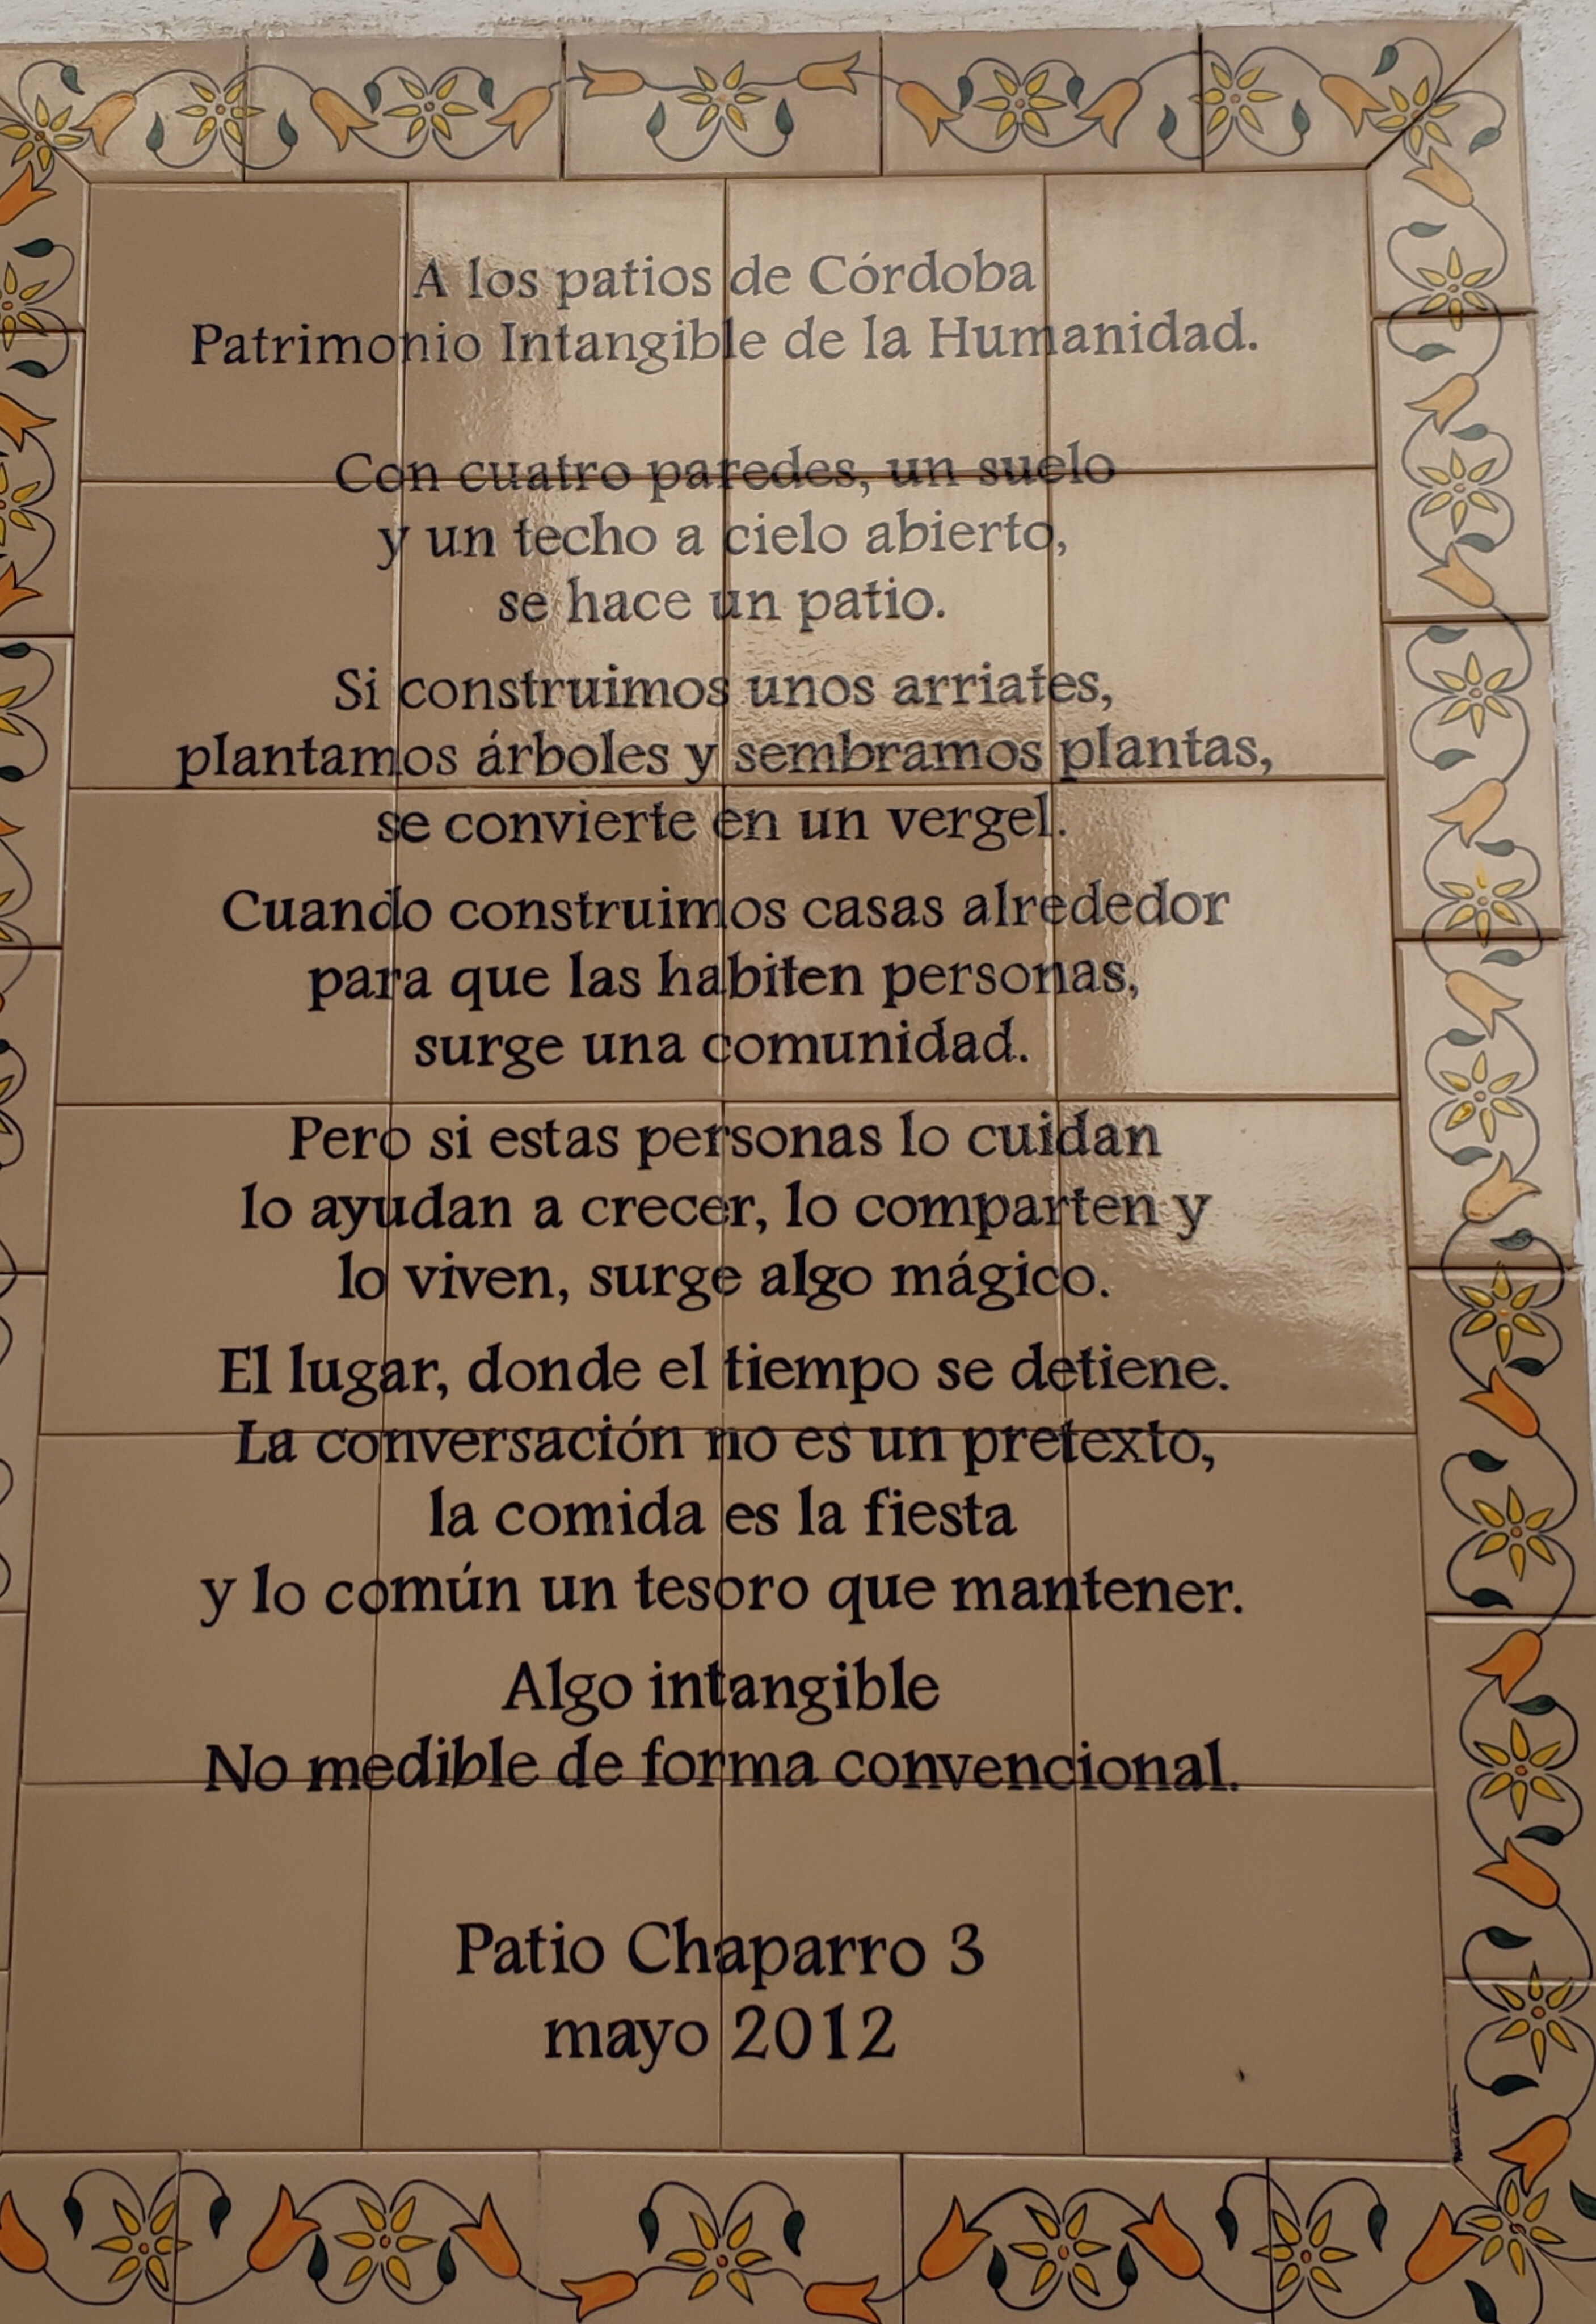 A los patios de Córdoba
Patrimonio Intangible de la Humanidad.
Con cuatro paredes, un suelo
y un techo a cielo abierto,
se hace un patio.
Si construimos unos arriates,
plantamos árboles y sembramos plantas,
se convierte en un vergel.
Cuando construimos casas alrededor
para que las habiten personas,
surge una comunidad.
Pero si estas personas lo cuidan
lo ayudan a crecer, lo comparten y
lo viven, surge algo mágico.
El lugar, donde el tiempo se detiene.
La conversación no es un pretexto,
la comida es la fiesta
y lo común un tesoro que mantener.
Algo intangible
No medible de forma convencional.
Patio Chaparro 3
mayo 2012